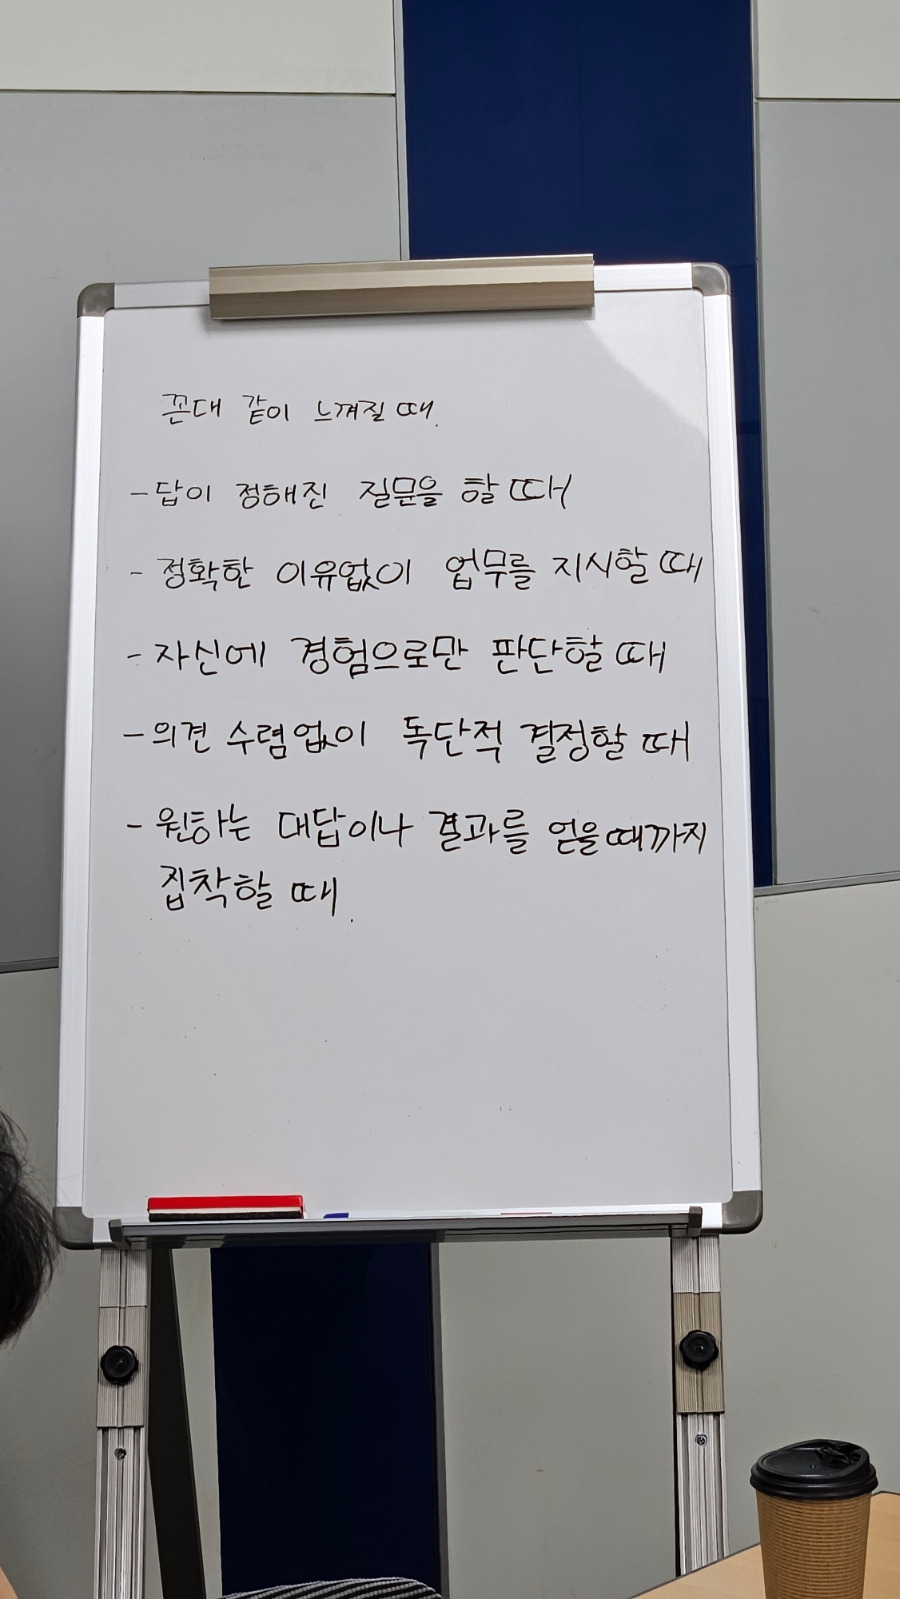 꼰대 같이 느껴질 때.
- 답이 정해진 질문을 할 때
- 정확한 이유없이 업무를 지시할 때
- 자신에 경험으로만 판단할 때
- 의견 수렴없이 독단적 결정할 때
- 원하는 대답이나 결과를 얻을때까지
집착할 때.